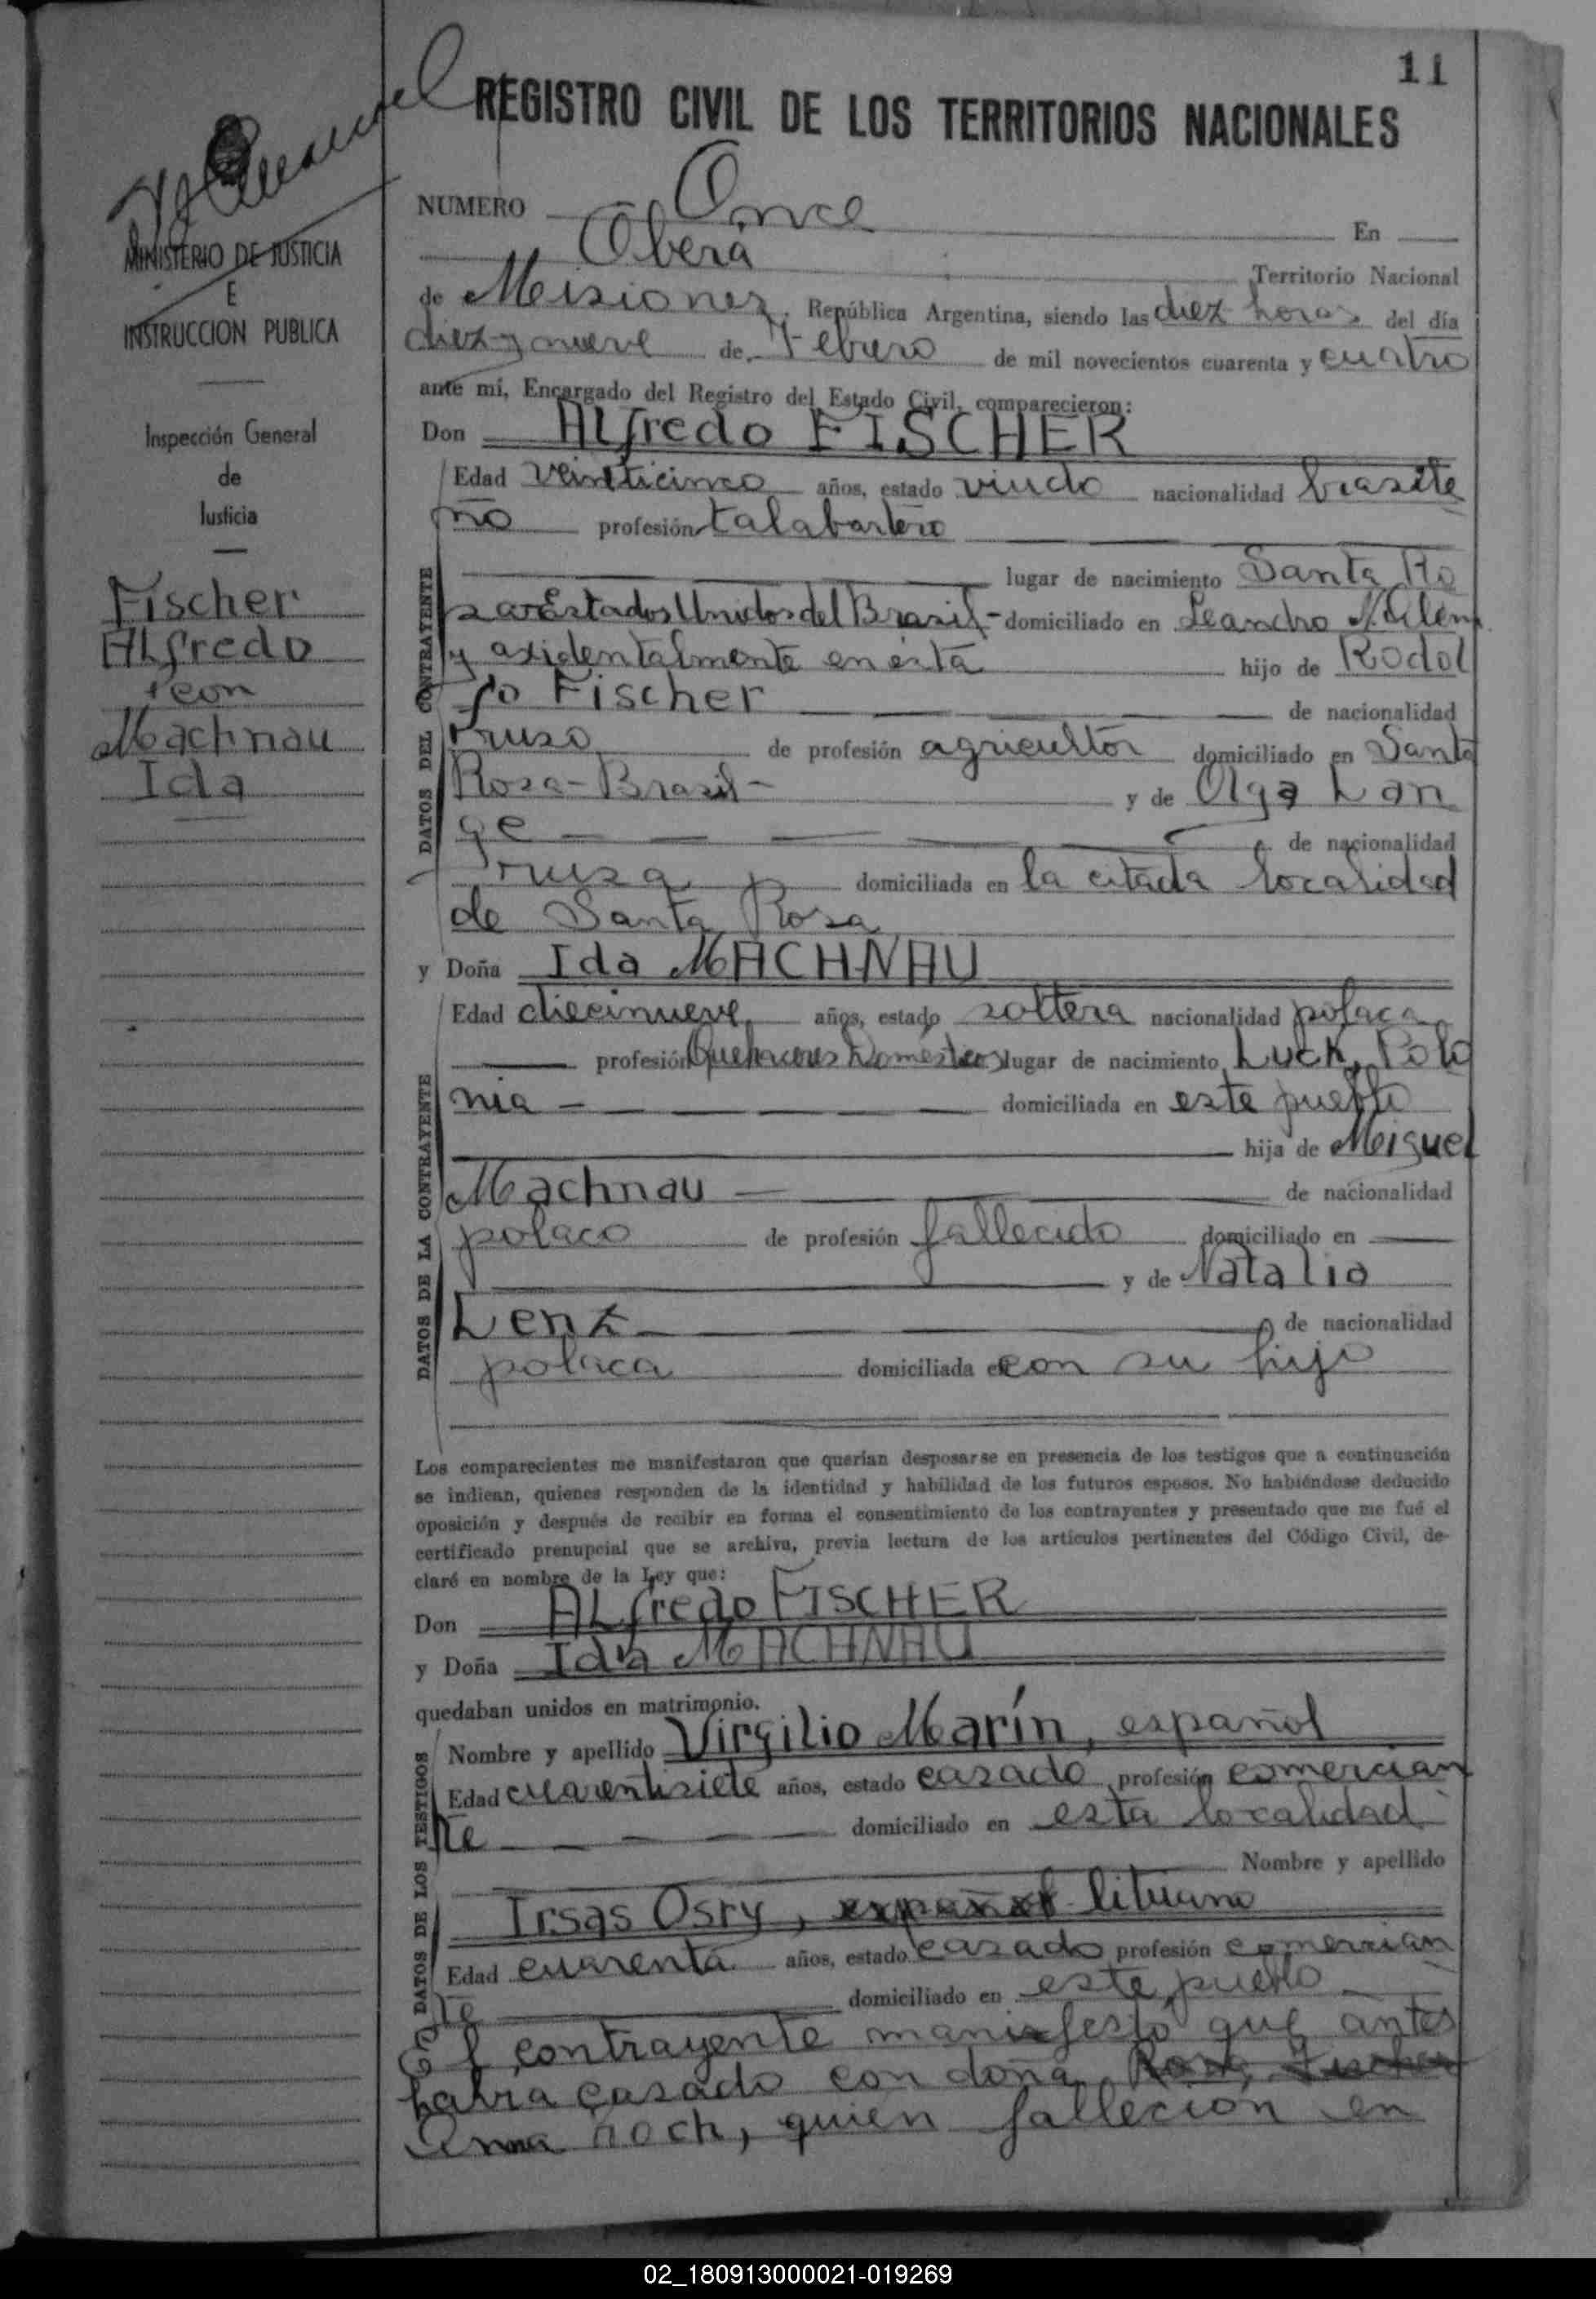 11
REGISTRO CIVIL DE LOS TERRITORIOS NACIONALES
MINISTERIO DE JUSTICIA
E
INSTRUCCION PUBLICA
Inspección General
de
Justicia
Fischer
ALfredo
con
Machnau
Ida
NUMERO Once En
Oberá Territorio Nacional
de Misiones, República Argentina, siendo las diez horas del día
diez y nueve de Febrero de mil novecientos cuarenta y cuatro
ante mí, Encargado del Registro del Estado Civil, comparecieron:
Don ALfredo FISCHER
DATOS DEL CONTRAYENTE
Edad veinticinco años, estado viudo nacionalidad brasile
ño profesión talabartero
lugar de nacimiento Santa Ro
sa Estados Unidos del Brasil - domiciliado en Leandro N. Alem
y axidentalmente en esta hijo de Rodol
fo Fischer de nacionalidad
ruso de profesión agricultor domiciliado en Santa
Rosa - Brasil - y de Olga Lan
ge de nacionalidad
rusa domiciliada en la citada localidad
de Santa Rosa
y Doña Ida MACHNAU
DATOS DE LA CONTRAYENTE
Edad diecinueve años, estado soltera nacionalidad polaca
profesión Quehaceres Domésticos lugar de nacimiento Luck, Polo
nia - domiciliada en este pueblo
hija de Miguel
Machnau de nacionalidad
polaco de profesión fallecido domiciliado en
y de Natalia
Lenz de nacionalidad
polaca domiciliada en con su hijo
Los comparecientes me manifestaron que querían desposarse en presencia de los testigos que a continuación
se indican, quienes responden de la identidad y habilidad de los futuros esposos. No habiéndose deducido
oposición y después de recibir en forma el consentimiento de los contrayentes y presentado que me fué el
certificado prenupcial que se archiva, previa lectura de los artículos pertinentes del Código Civil, de-
claré en nombre de la Ley que:
Don ALfredo FISCHER
y Doña Ida MACHNAU
quedaban unidos en matrimonio.
DATOS DE LOS TESTIGOS
Nombre y apellido Virgilio Marín, español
Edad cuarentisiete años, estado casado profesión comercian
te domiciliado en esta localidad
Nombre y apellido
Irsas Osry, español lituano
Edad cuarenta años, estado casado profesión comercian
te domiciliado en este pueblo
El contrayente manifestó que antes
habia casado con doña
Anna Koch, quien fallecion en
02_180913000021-019269